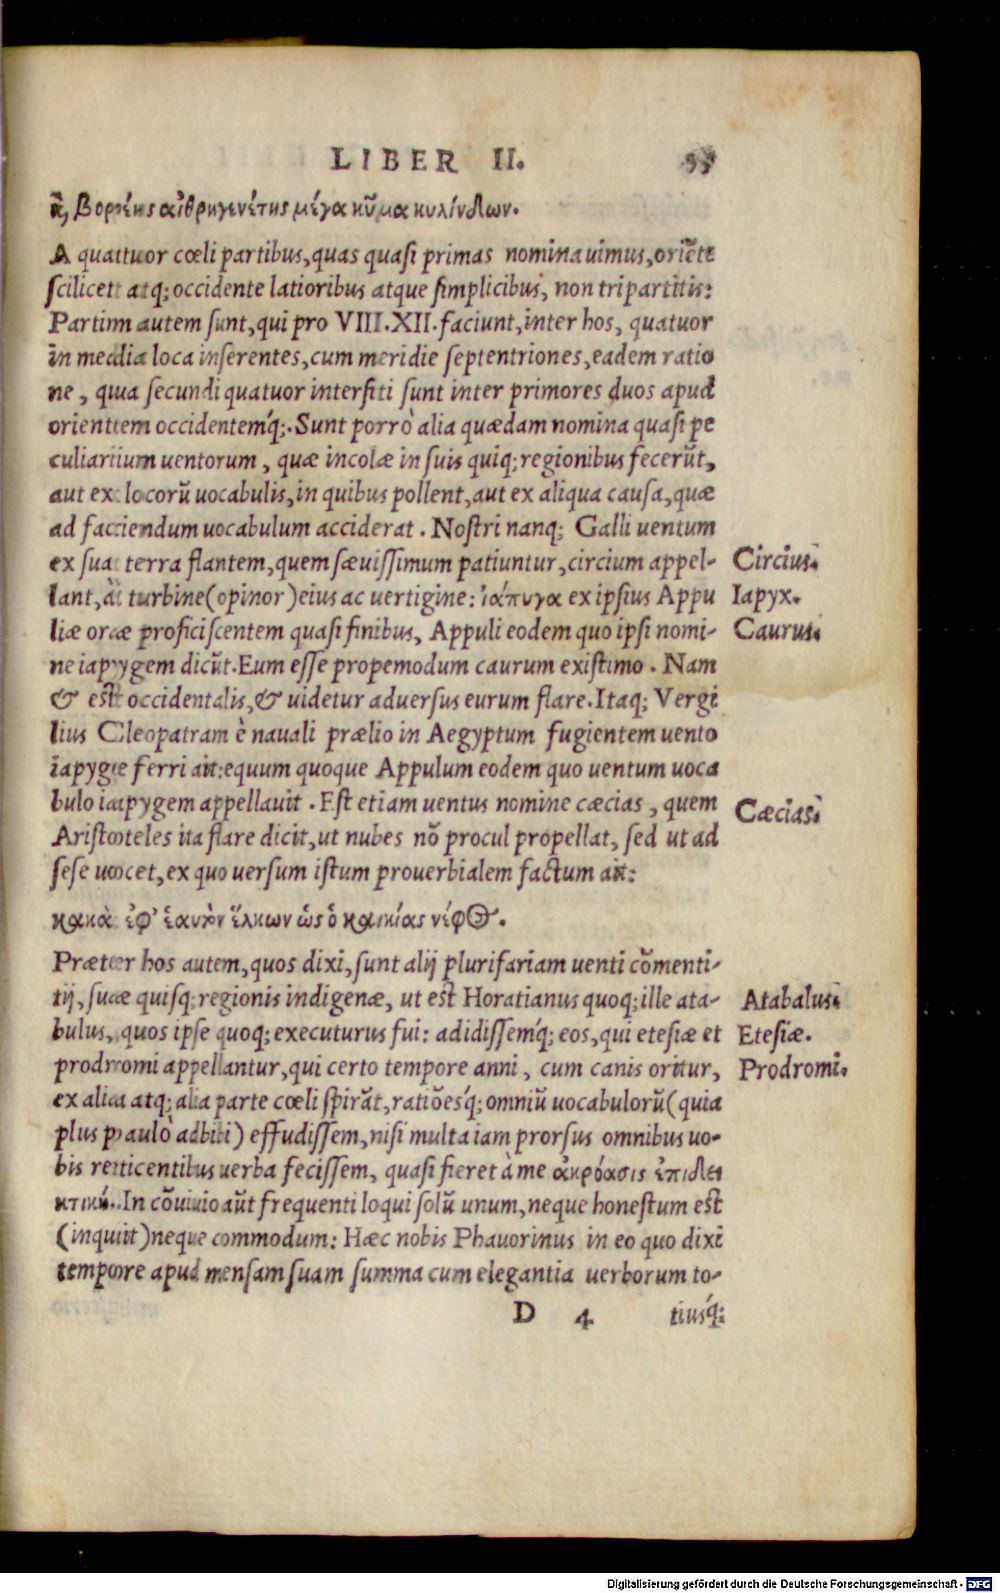 LIBER II. 55
κ̀, Βορέης αἰθρηγενέτης μέγα κῦμα κυλίνδων.
A quattuor cœli partibus, quas quasi primas nominauimus, oriẽte
scilicet atq; occidente latioribus atque simplicibus, non tripartitis:
Partim autem sunt, qui pro VIII. XII. faciunt, inter hos, quatuor
in media loca inserentes, cum meridie septentriones, eadem ratio
ne, qua secundi quatuor intersiti sunt inter primores duos apud
orientem occidentemq́;. Sunt porrò alia quædam nomina quasi pe
culiarium uentorum, quæ incolæ in suis quiq; regionibus fecerũt,
aut ex locorũ uocabulis, in quibus pollent, aut ex aliqua causa, quæ
ad faciendum uocabulum acciderat. Nostri nanq; Galli uentum
ex sua terra flantem, quem sæuissimum patiuntur, circium appel-
Circius.
lant, à turbine (opinor) eius ac uertigine: ἰάπυγα ex ipsius Appu
Iapyx.
liæ oræ proficiscentem quasi finibus, Appuli eodem quo ipsi nomi-
Caurus.
ne iapygem dicũt. Eum esse propemodum caurum existimo. Nam
& est occidentalis, & uidetur aduersus eurum flare. Itaq; Vergi
lius Cleopatram è nauali prælio in Aegyptum fugientem uento
iapyge ferri ait: equum quoque Appulum eodem quo uentum uoca
bulo iapygem appellauit. Est etiam uentus nomine cæcias, quem
Cæcias.
Aristoteles ita flare dicit, ut nubes nõ procul propellat, sed ut ad
sese uocet, ex quo uersum istum prouerbialem factum ait:
κακὰ ἐφ' ἑαυτὸν ἕλκων ὡς ὁ καικίας νέφος.
Præter hos autem, quos dixi, sunt alij plurifariam uenti cõmenti-
tij, suæ quisq; regionis indigenæ, ut est Horatianus quoq; ille ata-
Atabalus.
bulus, quos ipse quoq; executurus fui: adidissemq́; eos, qui etesiæ et
Etesiæ.
prodromi appellantur, qui certo tempore anni, cum canis oritur,
Prodromi.
ex alia atq; alia parte cœli spirãt, ratiõesq́; omniũ uocabulorũ (quia
plus paulò adbibi) effudissem, nisi multa iam prorsus omnibus uo-
bis reticentibus uerba fecissem, quasi fieret à me ἀκρόασις ἐπιδει
κτική. In cõuiuio aũt frequenti loqui solũ unum, neque honestum est
(inquit) neque commodum: Hæc nobis Phauorinus in eo quo dixi
tempore apud mensam suam summa cum elegantia uerborum to-
D 4 tiusq́;
Digitalisierung gefördert durch die Deutsche Forschungsgemeinschaft - DFG